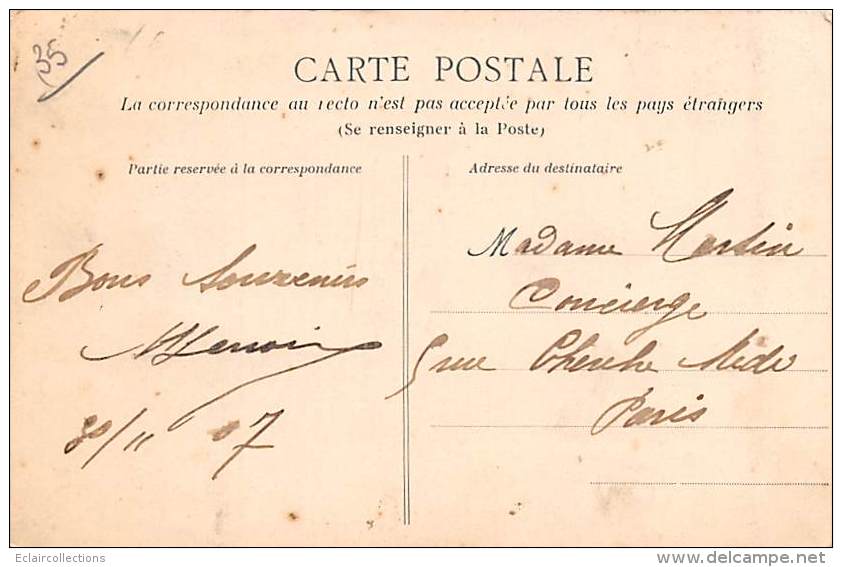 35
CARTE POSTALE
La correspondance au recto n'est pas acceptée par tous les pays étrangers
(Se renseigner à la Poste)
Partie reservée à la correspondance
Adresse du destinataire
Bons Souvenirs
30/11 07
Madame Martin
Concierge
5 rue Cherche Midi
Paris
Eclaircollections
delcampe.net